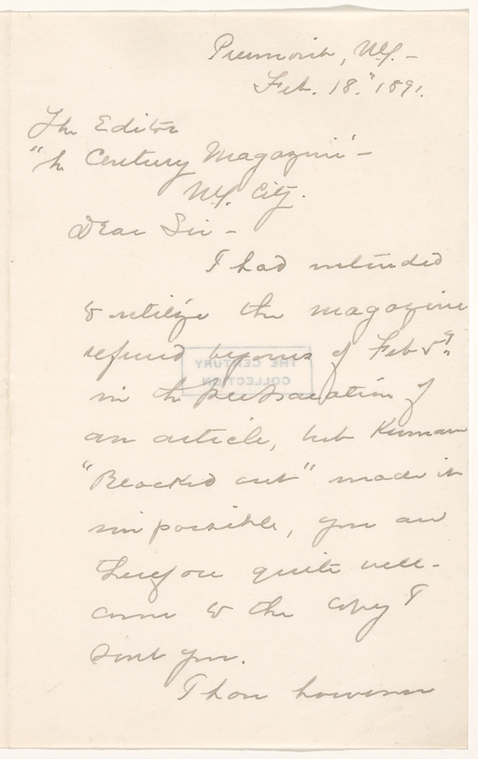 Piermont, N.Y. –
Feb. 18." 1891.
The Editor
"The Century Magazine" –
N.Y. City.
Dear Sir –
I had intended
to utilize the magazine
refused by yours of Feb 5"
in the preparation of
an article, but Kennan
"Blocked out" made it
impossible, you are
therefore quite well-
come to the copy I
sent you.
THE CENTURY
COLLECTION
I have however